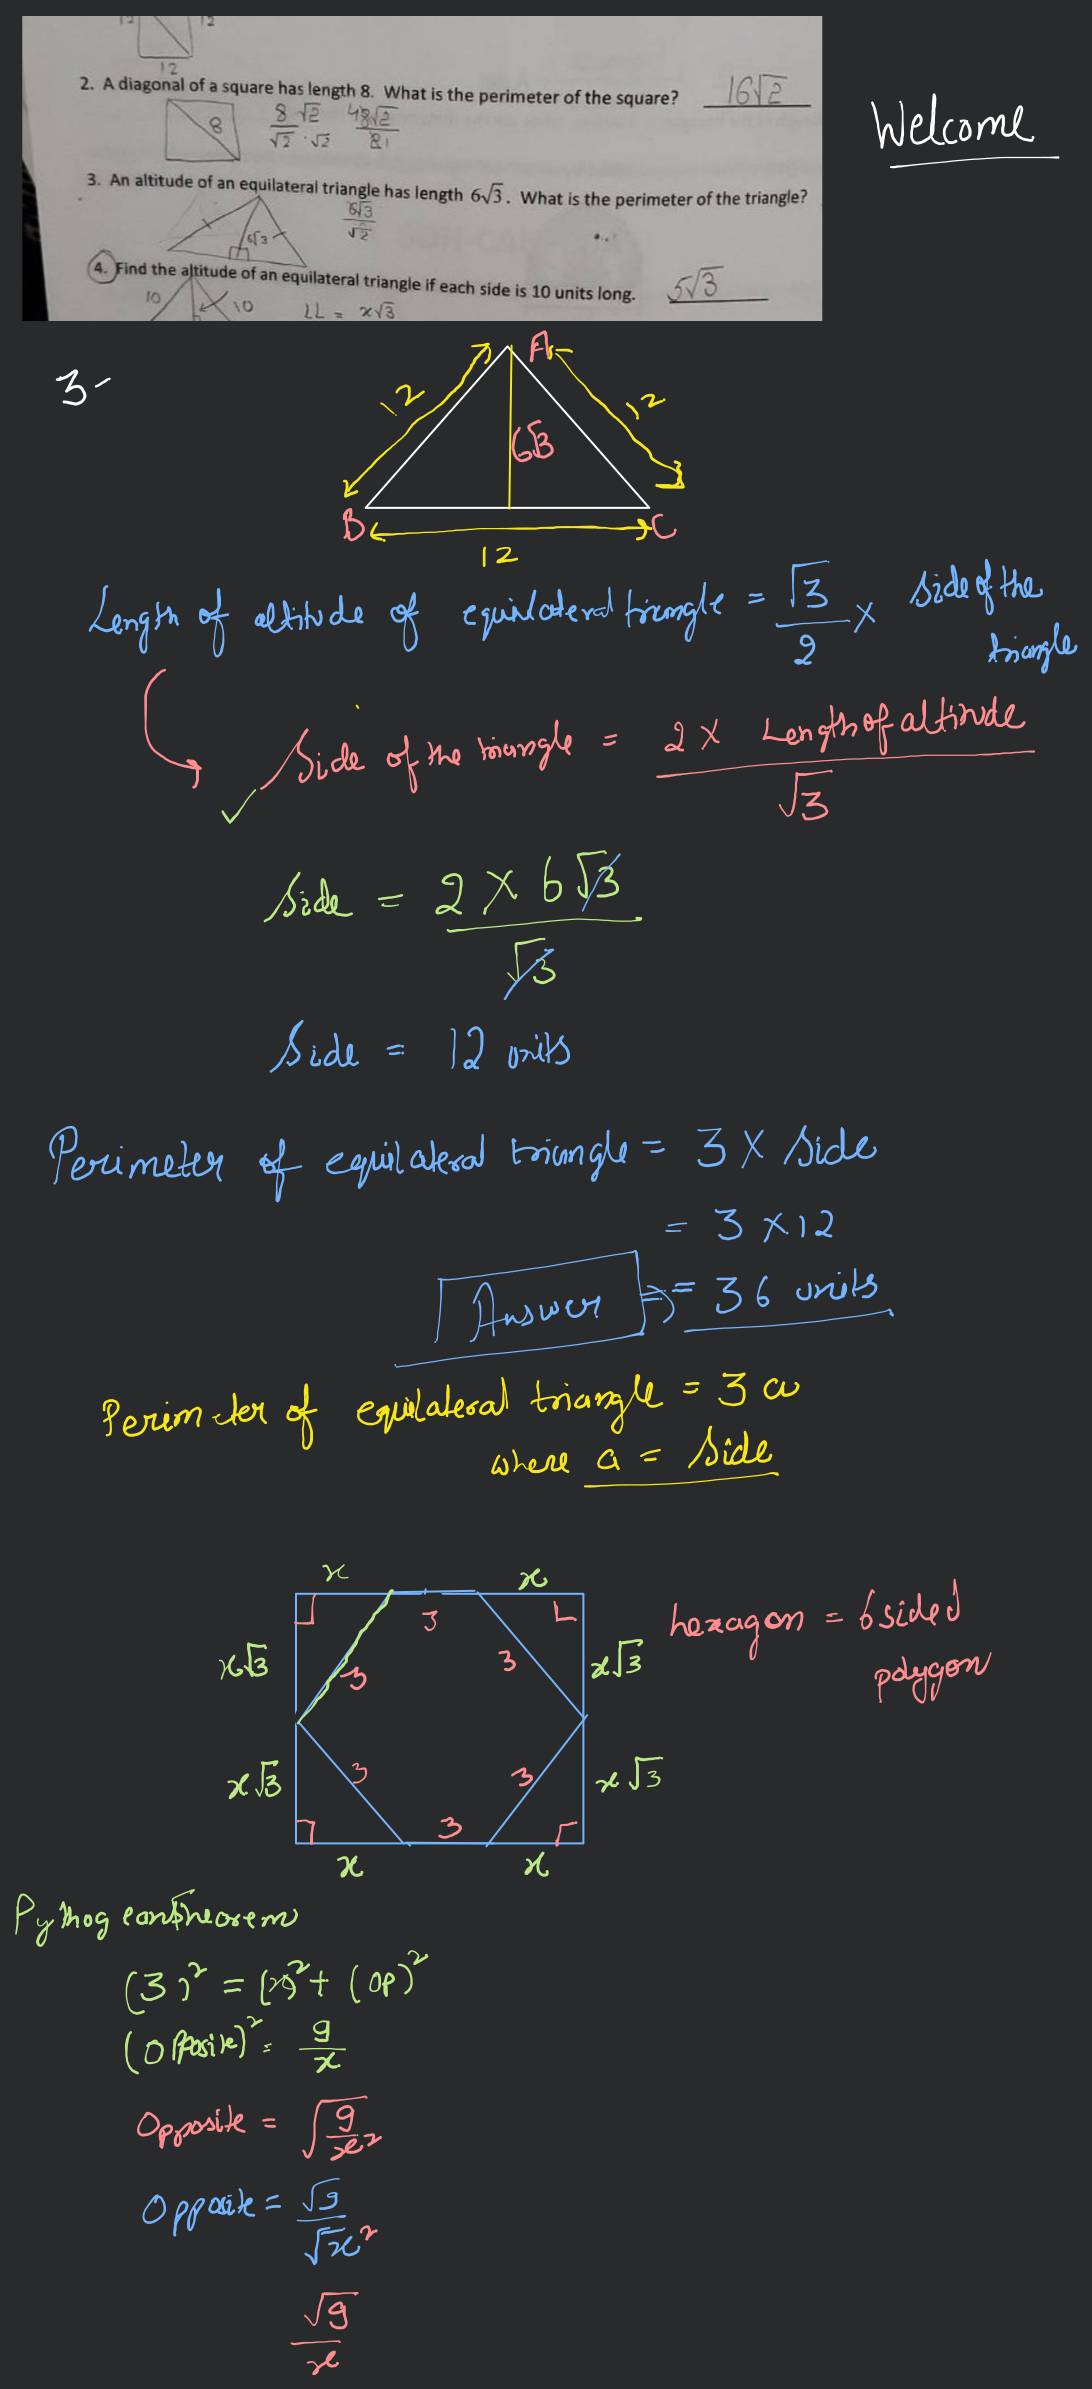 12 12
12
2. A diagonal of a square has length 8. What is the perimeter of the square? 16√2
8 8/√2 · √2/√2 48√2/21
3. An altitude of an equilateral triangle has length 6√3. What is the perimeter of the triangle?
6√3 6√3/√2
4. Find the altitude of an equilateral triangle if each side is 10 units long. 5√3
10 10 LL = x√3
Welcome
3-
A
12 12
6√3
B C
12
Length of altitude of equilateral triangle = √3/2 × side of the triangle
Side of the triangle = 2 × Length of altitude/√3
Side = 2 × 6√3/√3
Side = 12 units
Perimeter of equilateral triangle = 3 × Side
= 3 × 12
Answer ⇒ = 36 units
Perimeter of equilateral triangle = 3a
where a = Side
x x
3
x√3 3 3 x√3
hexagon = 6 sided
polygon
x√3 3 3 x√3
3
x x
Pythogeantheorem
(3)² = (x)² + (op)²
(Opposite)² = 9/x
Opposite = √9/x²
Opposite = √9/√x²
√9/x